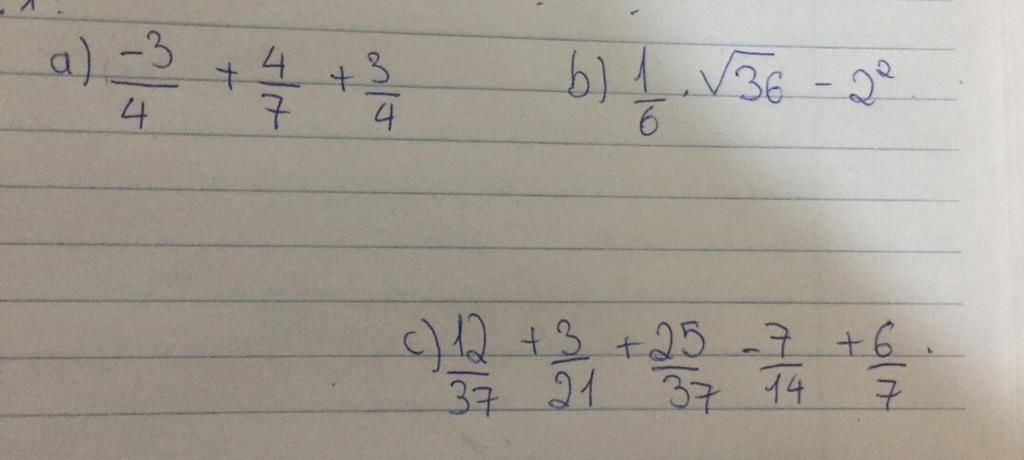 a) -3/4 + 4/7 + 3/4
b) 1/6 . √36 - 2²
c) 12/37 + 3/21 + 25/37 - 7/14 + 6/7 .